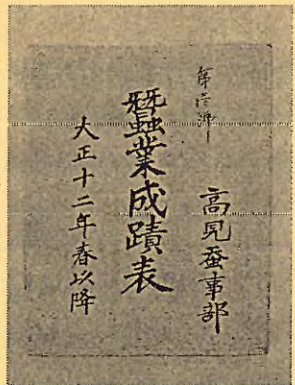 高見蚕事部
蠶業成蹟表
大正十二年春以降